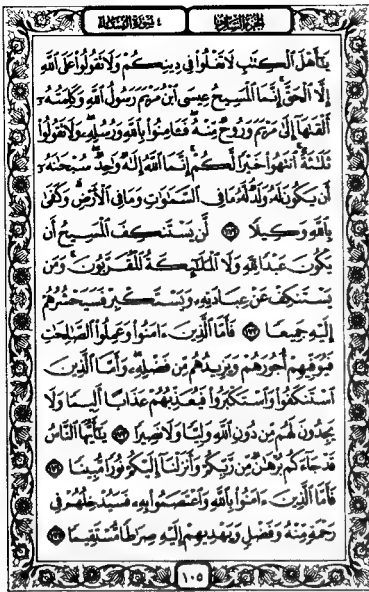 الجزء السادس ٤ سورة النساء
يَٰٓأَهْلَ ٱلْكِتَٰبِ لَا تَغْلُوا۟ فِى دِينِكُمْ وَلَا تَقُولُوا۟ عَلَى ٱللَّهِ
إِلَّا ٱلْحَقَّ إِنَّمَا ٱلْمَسِيحُ عِيسَى ٱبْنُ مَرْيَمَ رَسُولُ ٱللَّهِ وَكَلِمَتُهُۥٓ
أَلْقَىٰهَآ إِلَىٰ مَرْيَمَ وَرُوحٌ مِّنْهُ فَـَٔامِنُوا۟ بِٱللَّهِ وَرُسُلِهِۦ وَلَا تَقُولُوا۟
ثَلَٰثَةٌ ٱنتَهُوا۟ خَيْرًا لَّكُمْ إِنَّمَا ٱللَّهُ إِلَٰهٌ وَٰحِدٌ سُبْحَٰنَهُۥٓ
أَن يَكُونَ لَهُۥ وَلَدٌ لَّهُۥ مَا فِى ٱلسَّمَٰوَٰتِ وَمَا فِى ٱلْأَرْضِ وَكَفَىٰ
بِٱللَّهِ وَكِيلًا ١٧١ لَّن يَسْتَنكِفَ ٱلْمَسِيحُ أَن
يَكُونَ عَبْدًا لِّلَّهِ وَلَا ٱلْمَلَٰٓئِكَةُ ٱلْمُقَرَّبُونَ وَمَن
يَسْتَنكِفْ عَنْ عِبَادَتِهِۦ وَيَسْتَكْبِرْ فَسَيَحْشُرُهُمْ
إِلَيْهِ جَمِيعًا ١٧٢ فَأَمَّا ٱلَّذِينَ ءَامَنُوا۟ وَعَمِلُوا۟ ٱلصَّٰلِحَٰتِ
فَيُوَفِّيهِمْ أُجُورَهُمْ وَيَزِيدُهُم مِّن فَضْلِهِۦ وَأَمَّا ٱلَّذِينَ
ٱسْتَنكَفُوا۟ وَٱسْتَكْبَرُوا۟ فَيُعَذِّبُهُمْ عَذَابًا أَلِيمًا وَلَا
يَجِدُونَ لَهُم مِّن دُونِ ٱللَّهِ وَلِيًّا وَلَا نَصِيرًا ١٧٣ يَٰٓأَيُّهَا ٱلنَّاسُ
قَدْ جَآءَكُم بُرْهَٰنٌ مِّن رَّبِّكُمْ وَأَنزَلْنَآ إِلَيْكُمْ نُورًا مُّبِينًا ١٧٤
فَأَمَّا ٱلَّذِينَ ءَامَنُوا۟ بِٱللَّهِ وَٱعْتَصَمُوا۟ بِهِۦ فَسَيُدْخِلُهُمْ فِى
رَحْمَةٍ مِّنْهُ وَفَضْلٍ وَيَهْدِيهِمْ إِلَيْهِ صِرَٰطًا مُّسْتَقِيمًا ١٧٥
١٠٥